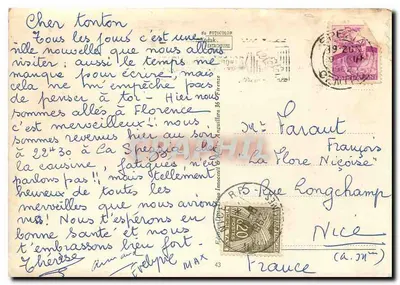 Cher tonton
Tous les jours c'est une
ville nouvelle que nous allons
visiter; aussi le temps me
manque pour écrire, mais
cela ne m'empêche pas
de penser à toi - Hier nous
sommes allés à Florence -
c'est merveilleux! nous
sommes revenus hier au soir
à 22h30 à La
la cousine, fatigués n'en
parlons pas!! mais tellement
heureux de toutes les
merveilles que nous avions
vus! Nous t'espérons en
bonne santé et nous
t'embrassons bien fort-
Thérèse
Evelyne MAX
Mr Faraut
François
La Flore Niçoise
Rue Longchamp
Nice
(A.M.)
France
0,20